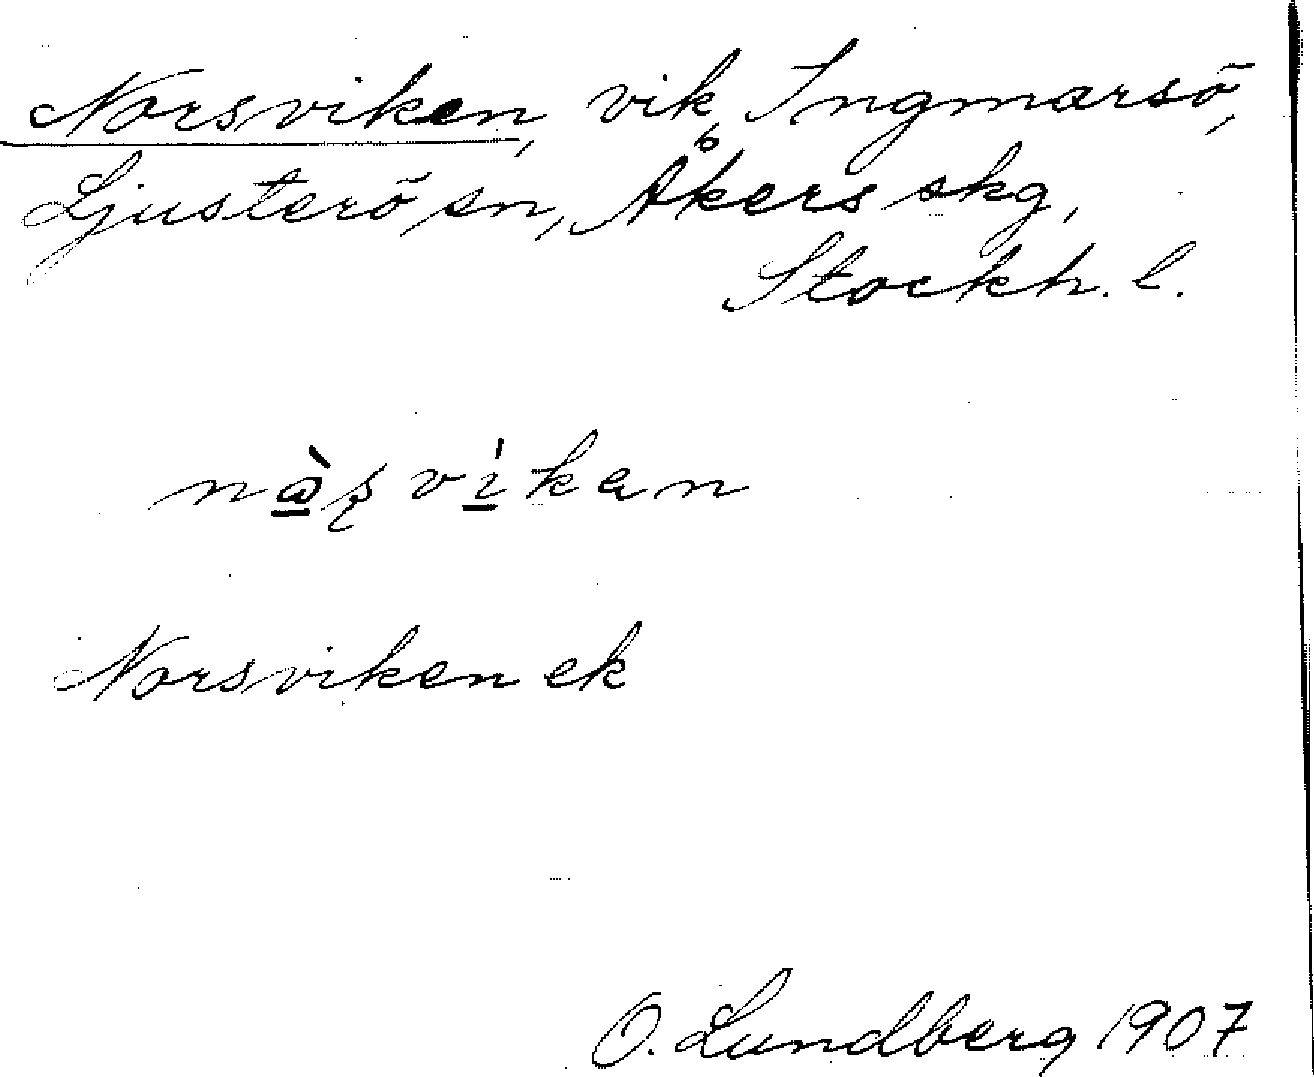 Norsviken, vik, Ingmarsö,
Ljusterö sn, Åkers skg,
Stockh. l.
Norsviken ek
O. Lundberg 1907